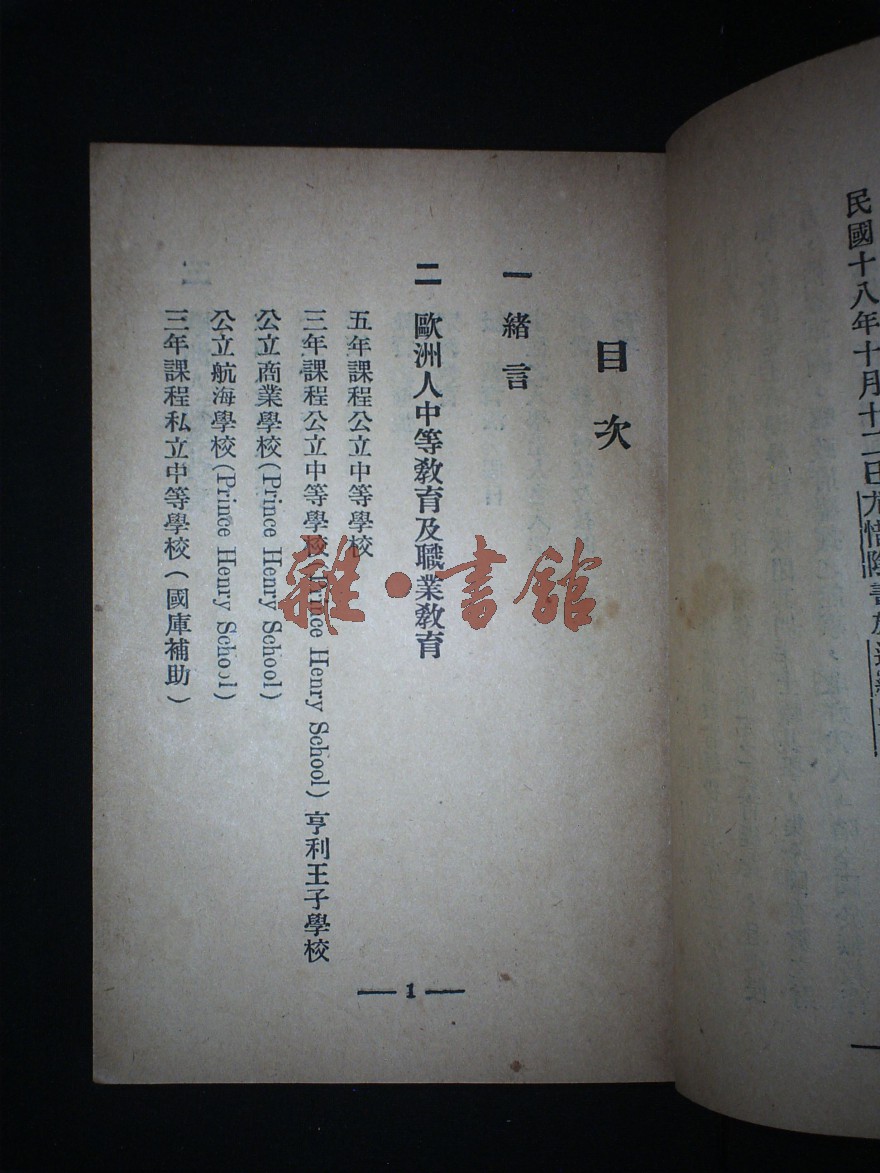 民國十八年十月十二日尤惜陰書於
目次
一 緒言
二 歐洲人中等敎育及職業敎育
五年課程公立中等學校
三年課程公立中等學校(Prince Henry School)亨利王子學校
公立商業學校(Prince Henry School)
公立航海學校(Prince Henry School)
三年課程私立中等學校(國庫補助)
— 1 —
雜·書館